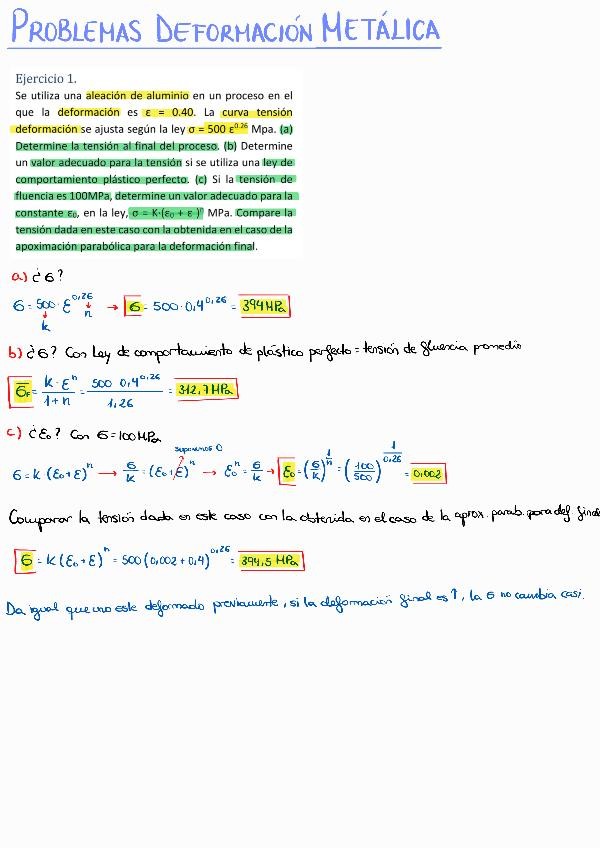 PROBLEMAS DEFORMACIÓN METÁLICA
Ejercicio 1.
Se utiliza una aleación de aluminio en un proceso en el
que la deformación es ε = 0.40. La curva tensión
deformación se ajusta según la ley σ = 500 ε^0.26 Mpa. (a)
Determine la tensión al final del proceso. (b) Determine
un valor adecuado para la tensión si se utiliza una ley de
comportamiento plástico perfecto. (c) Si la tensión de
fluencia es 100MPa, determine un valor adecuado para la
constante ε₀, en la ley, σ = K·(ε₀ + ε )^n MPa. Compare la
tensión dada en este caso con la obtenida en el caso de la
apoximación parabólica para la deformación final.
a) ¿σ?
σ = 500 · ε^0,26 → σ = 500 · 0,4^0,26 = 394 MPa
k n
b) ¿σ? Con Ley de comportamiento de plástico perfecto = tensión de fluencia promedio
σ̅_F = K · ε^n / 1+n = 500 0,4^0,26 / 1,26 = 312,7 MPa
c) ¿ε₀? Con σ = 100 MPa
suponemos 0
σ = K (ε₀ + ε)^n → σ/K = (ε₀ + ε)^n → ε₀^n = σ/K → ε₀ = (σ/K)^1/n = (100/500)^1/0,26 = 0,002
Comparar la tensión dada en este caso con la obtenida en el caso de la aprox. parab. para def. final
σ = K (ε₀ + ε)^n = 500 (0,002 + 0,4)^0,26 = 394,5 MPa
Da igual que uno este deformado previamente, si la deformación final es ↑, la σ no cambia casi.